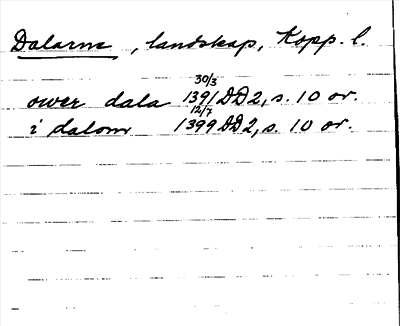 Dalarne, landskap, Kopp. l.
30/3
ower dala 1391 DD2, s. 10 or.
12/7
i dalom 1399 DD2, s. 10 or.